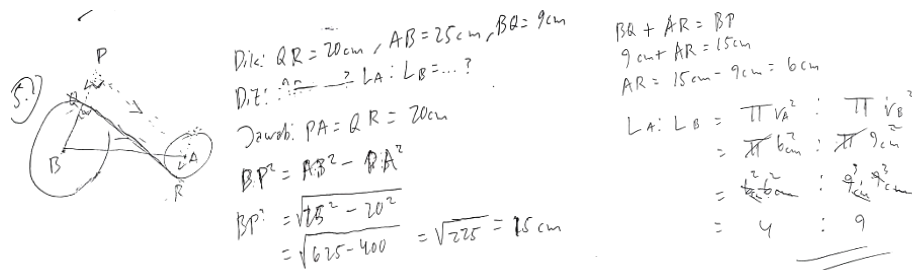 5.?
P
Q
B
A
R
Dik: QR = 20 cm, AB = 25 cm, BQ = 9 cm
Dit: LA : LB = ... ?
Jawab: PA = QR = 20 cm
BP² = AB² - PA²
BP² = √25² - 20²
= √625-400 = √225 = 15 cm
BQ + AR = BP
9 cm + AR = 15 cm
AR = 15 cm - 9 cm = 6 cm
LA : LB = π rA² : π rB²
= π 6 cm² : π 9 cm²
= 6² 6² cm : 9³ cm · 9³ cm
= 4 : 9